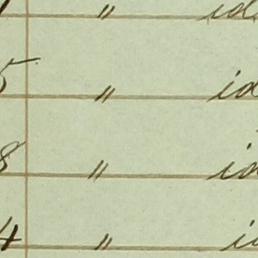 " id
5 " id
8 " id
4 " id